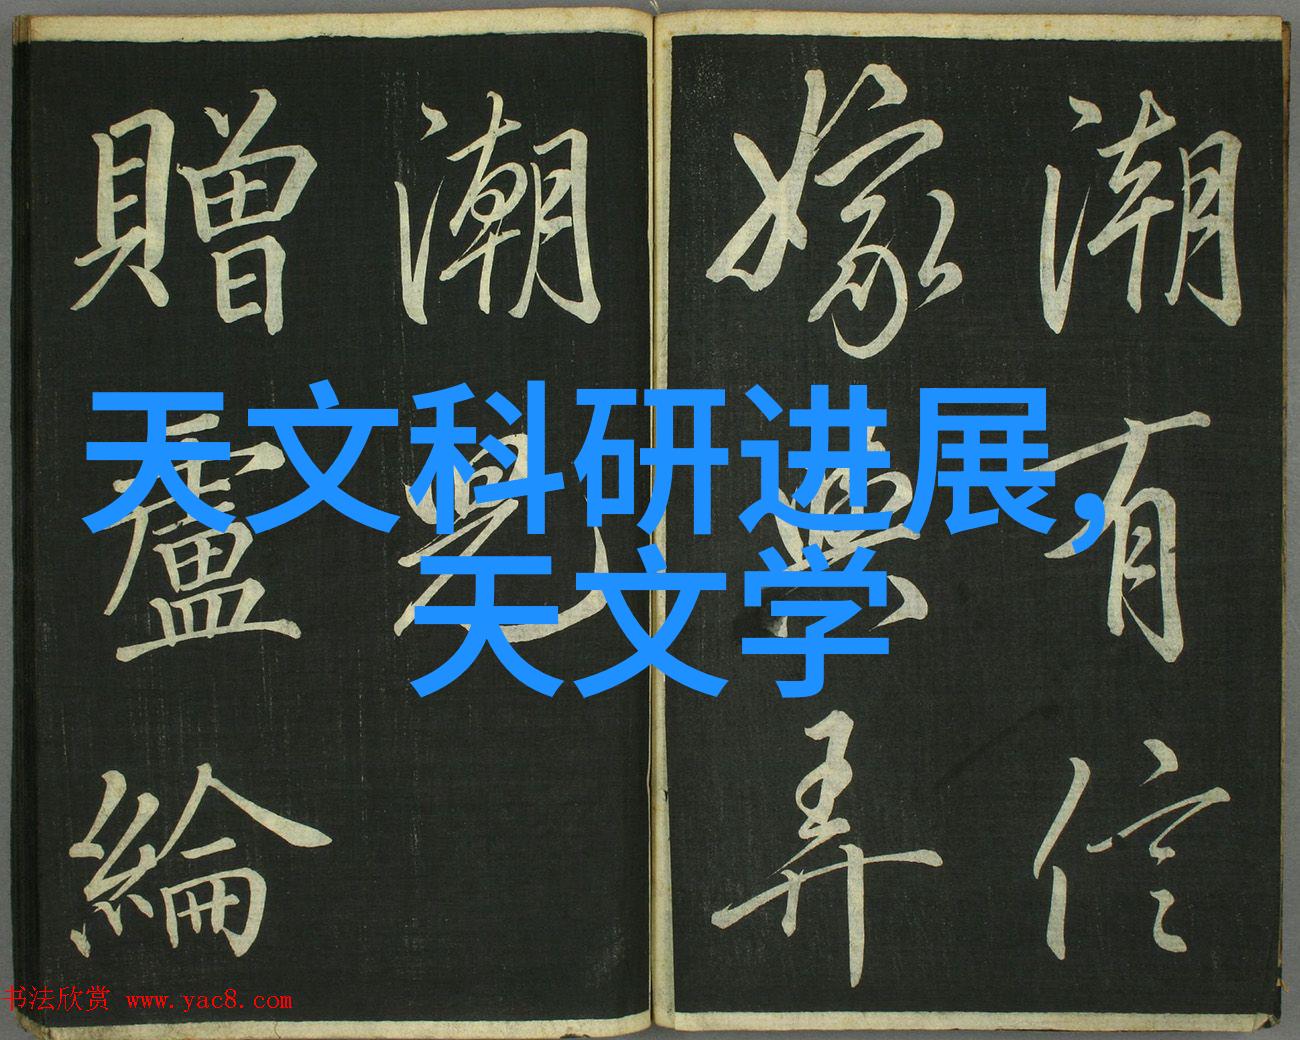 潮有信
嫁與弄
潮兒
贈盧綸
天文科研进展,
天文学
书法欣赏 www.yac8.com